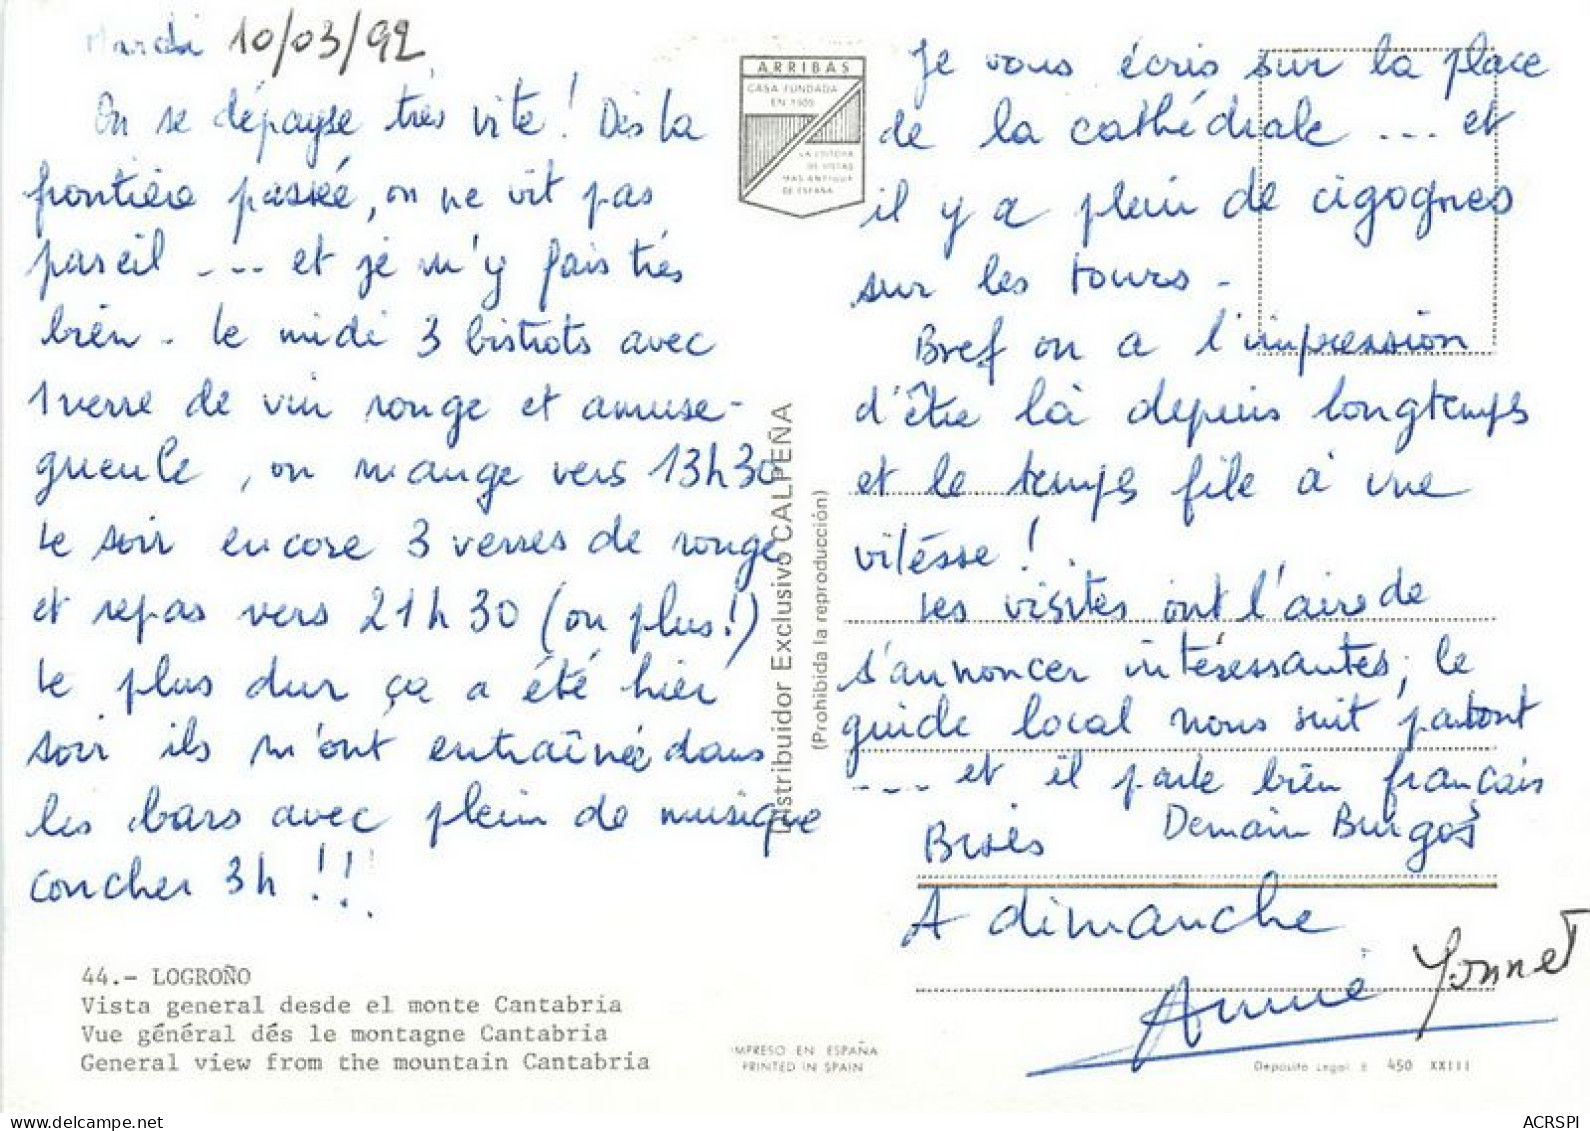 Mardi 10/03/92
On se dépayse très vite ! Dès la
frontière passée, on ne vit pas
pareil --- et je m'y fais très
bien - Le midi 3 bistrots avec
1 verre de vin rouge et amuse-
gueule, on mange vers 13h30
Le soir encore 3 verres de rouge
et repas vers 21h30 (ou plus!)
Le plus dur ça a été hier
soir ils m'ont entraînée dans
les bars avec plein de musique
coucher 3h !!!
44.- LOGROÑO
Vista general desde el monte Cantabria
Vue général dés le montagne Cantabria
General view from the mountain Cantabria
ARRIBAS
CASA FUNDADA
EN 1905
LA EDITORA
DE VISTAS
MAS ANTIGUA
DE ESPAÑA
Distribuidor Exclusivo CALPEÑA
(Prohibida la reproducción)
IMPRESO EN ESPAÑA
PRINTED IN SPAIN
Je vous écris sur la place
de la cathédrale --- et
il y a plein de cigognes
sur les tours -
Bref on a l'impression
d'être là depuis longtemps
et le temps file à une
vitesse !
Les visites ont l'air de
s'annoncer intéressantes, le
guide local nous suit partout
---- et il parle bien français
Bises Demain Burgos
A dimanche
Annie Yonnet
Deposito Legal B 450 XXIII
ACRSPI